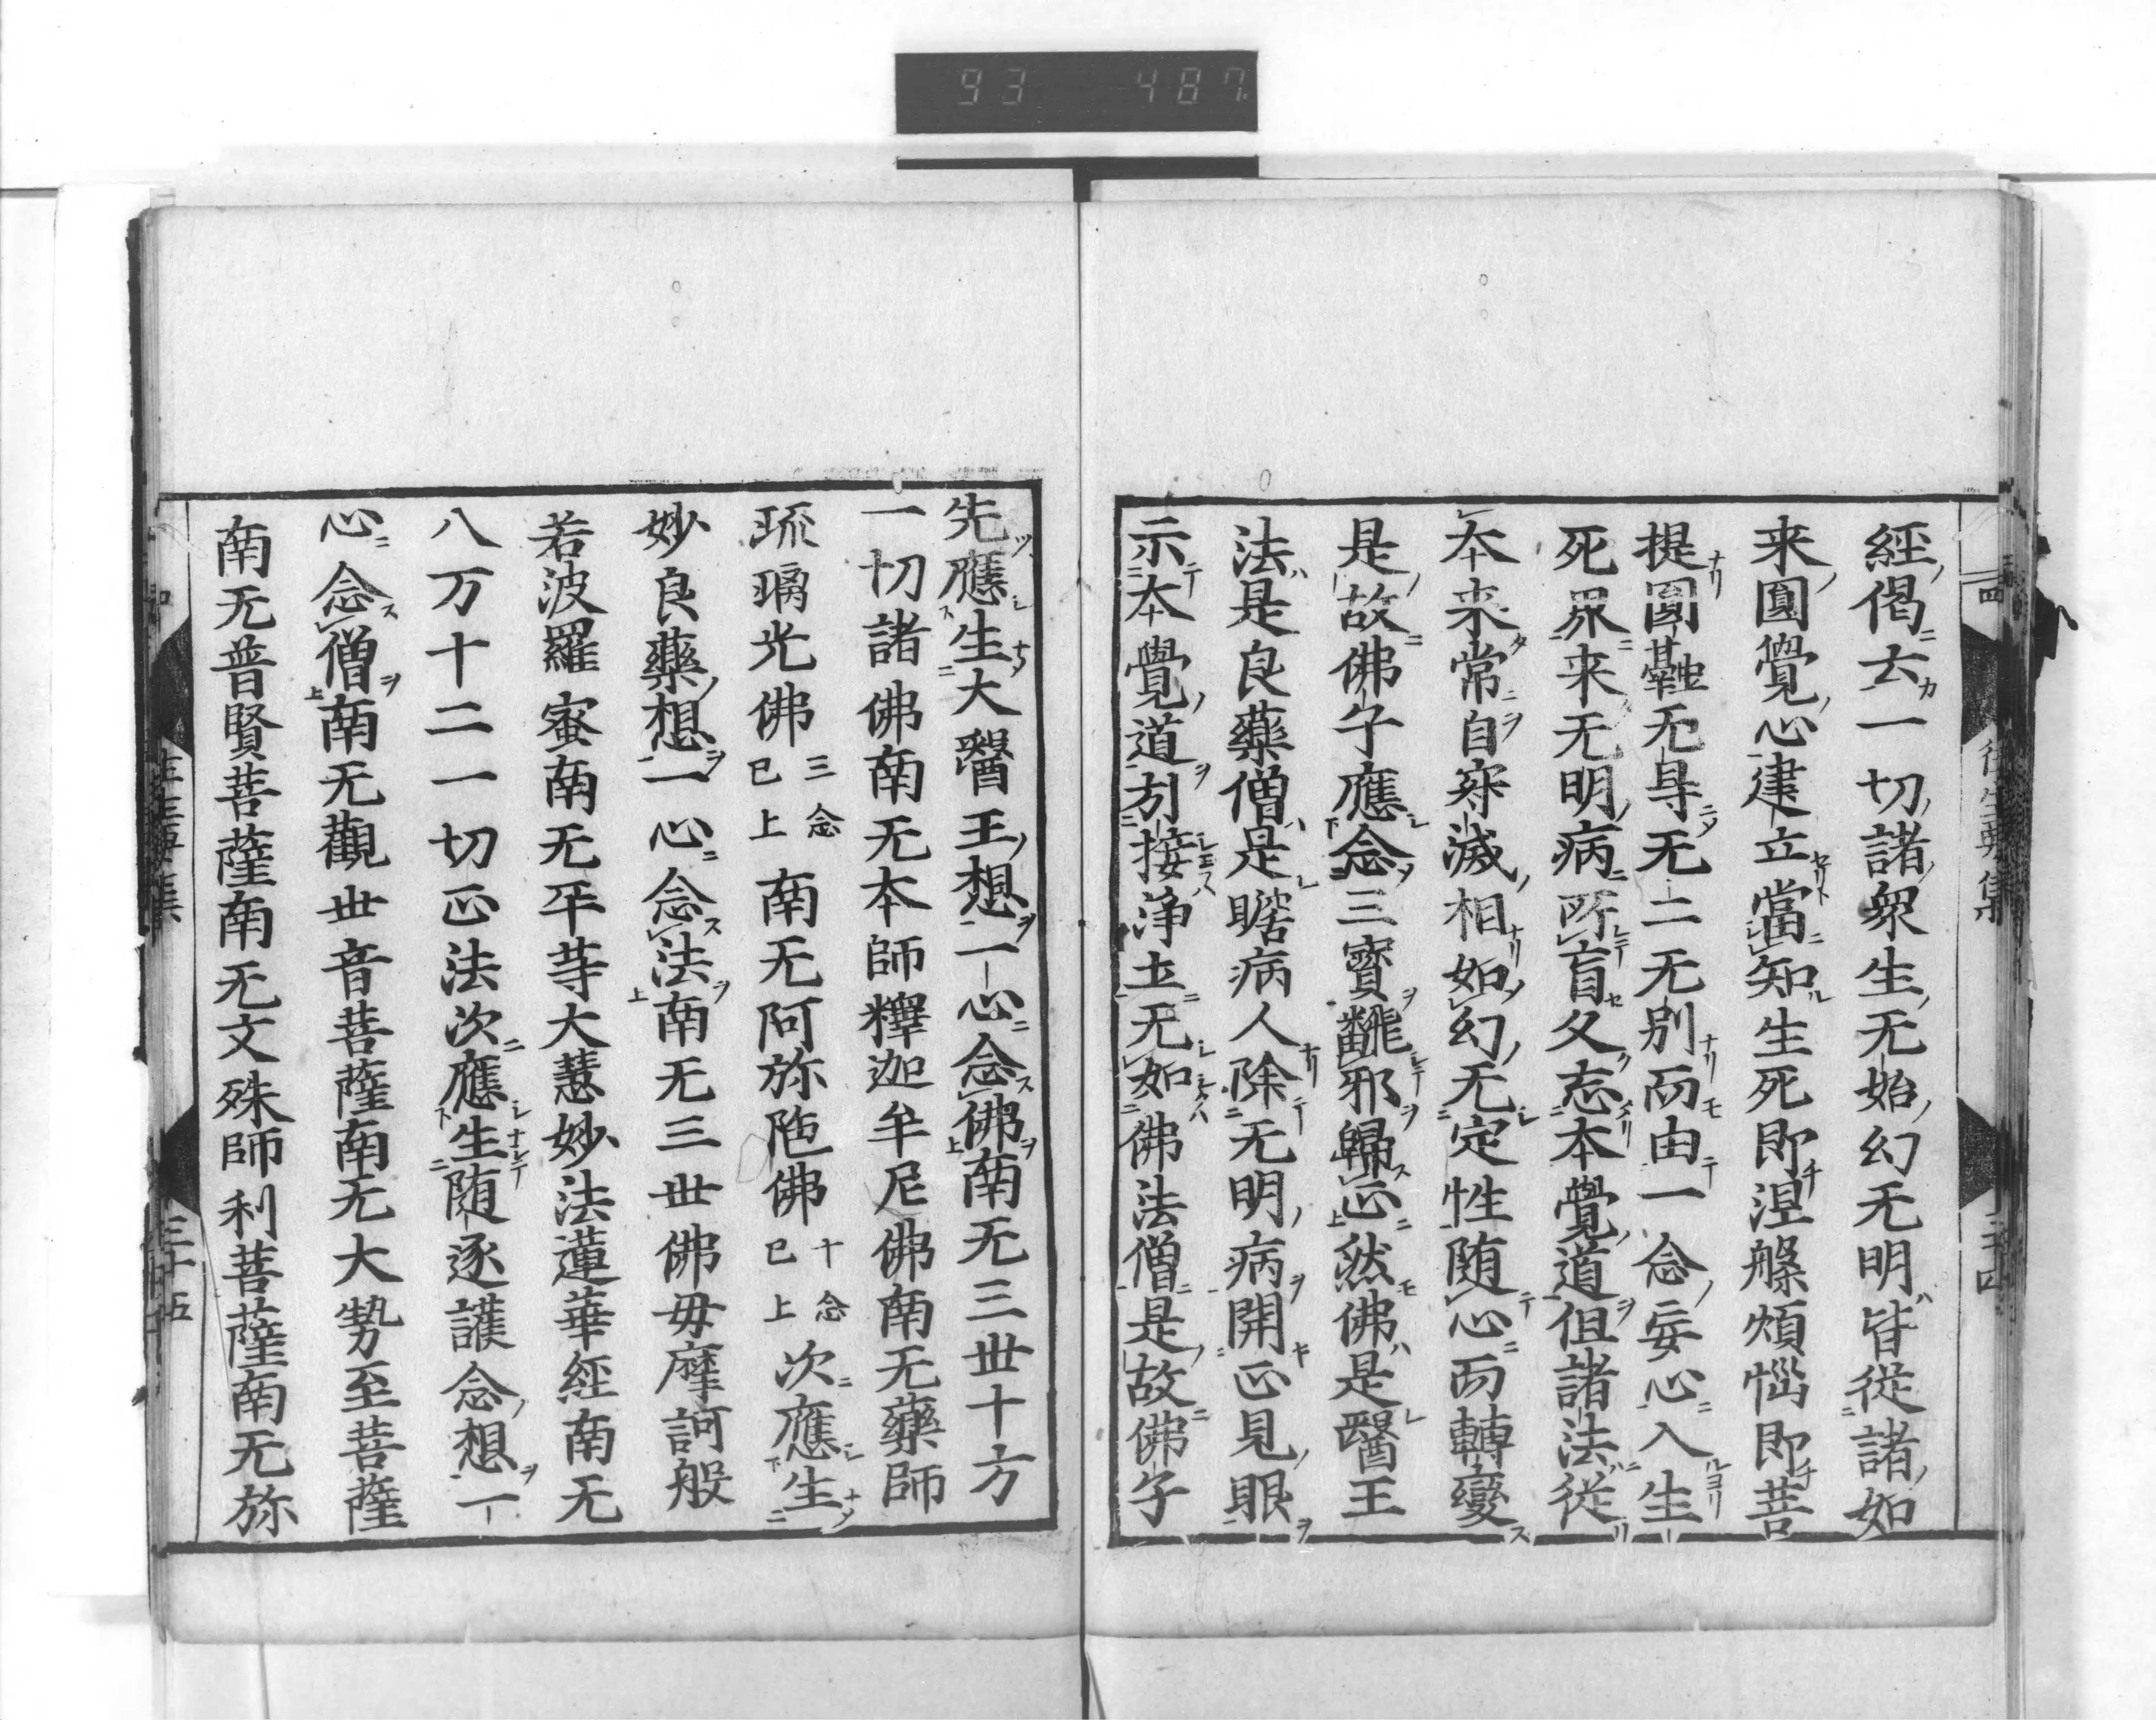 93 487
經偈云一切諸衆生无始幻无明皆從諸如
来圓覺心建立當知生死即涅槃煩惱即菩
提圓融无㝵无二无别而由一念妄心入生
死界来无明病所盲久忘本覺道但諸法從
本来常自寂滅相如幻无定性随心而轉變
是故佛子應念三寳翻邪歸正然佛是醫王
法是良藥僧是瞻病人除无明病開正見眼
示本覺道引接浄土无如佛法僧是故佛子
先應生大醫王想一心念佛南无三世十方
一切諸佛南无本師釋迦牟尼佛南无藥師
琉璃光佛三念已上南无阿弥陁佛十念已上次應生
妙良藥想一心念法南无三世佛母摩訶般
若波羅蜜南无平等大慧妙法蓮華經南无
八万十二一切正法次應生随逐護念想一
心念僧南无觀世音菩薩南无大㔟至菩薩
南无普賢菩薩南无文殊師利菩薩南无弥
三十五